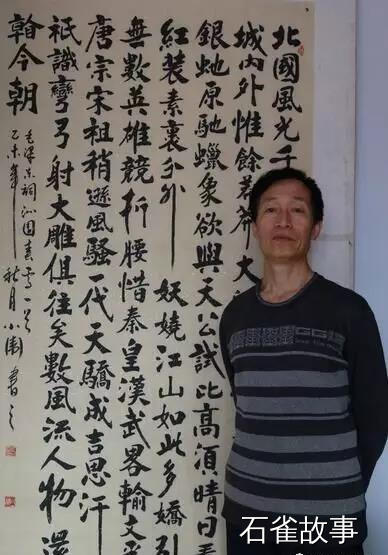 北國風光千
城內外惟餘莽莽大
銀虵原馳蠟象欲與天公試比高須晴日看
紅裝素裹分外妖嬈江山如此多嬌引
無數英雄競折腰惜秦皇漢武畧輸文采
唐宗宋祖稍遜風騷一代天驕成吉思汗
祇識彎弓射大雕俱往矣數風流人物還
翰今朝
毛澤東詞沁園春雪一首
乙未年秋月小園書之
石雀故事